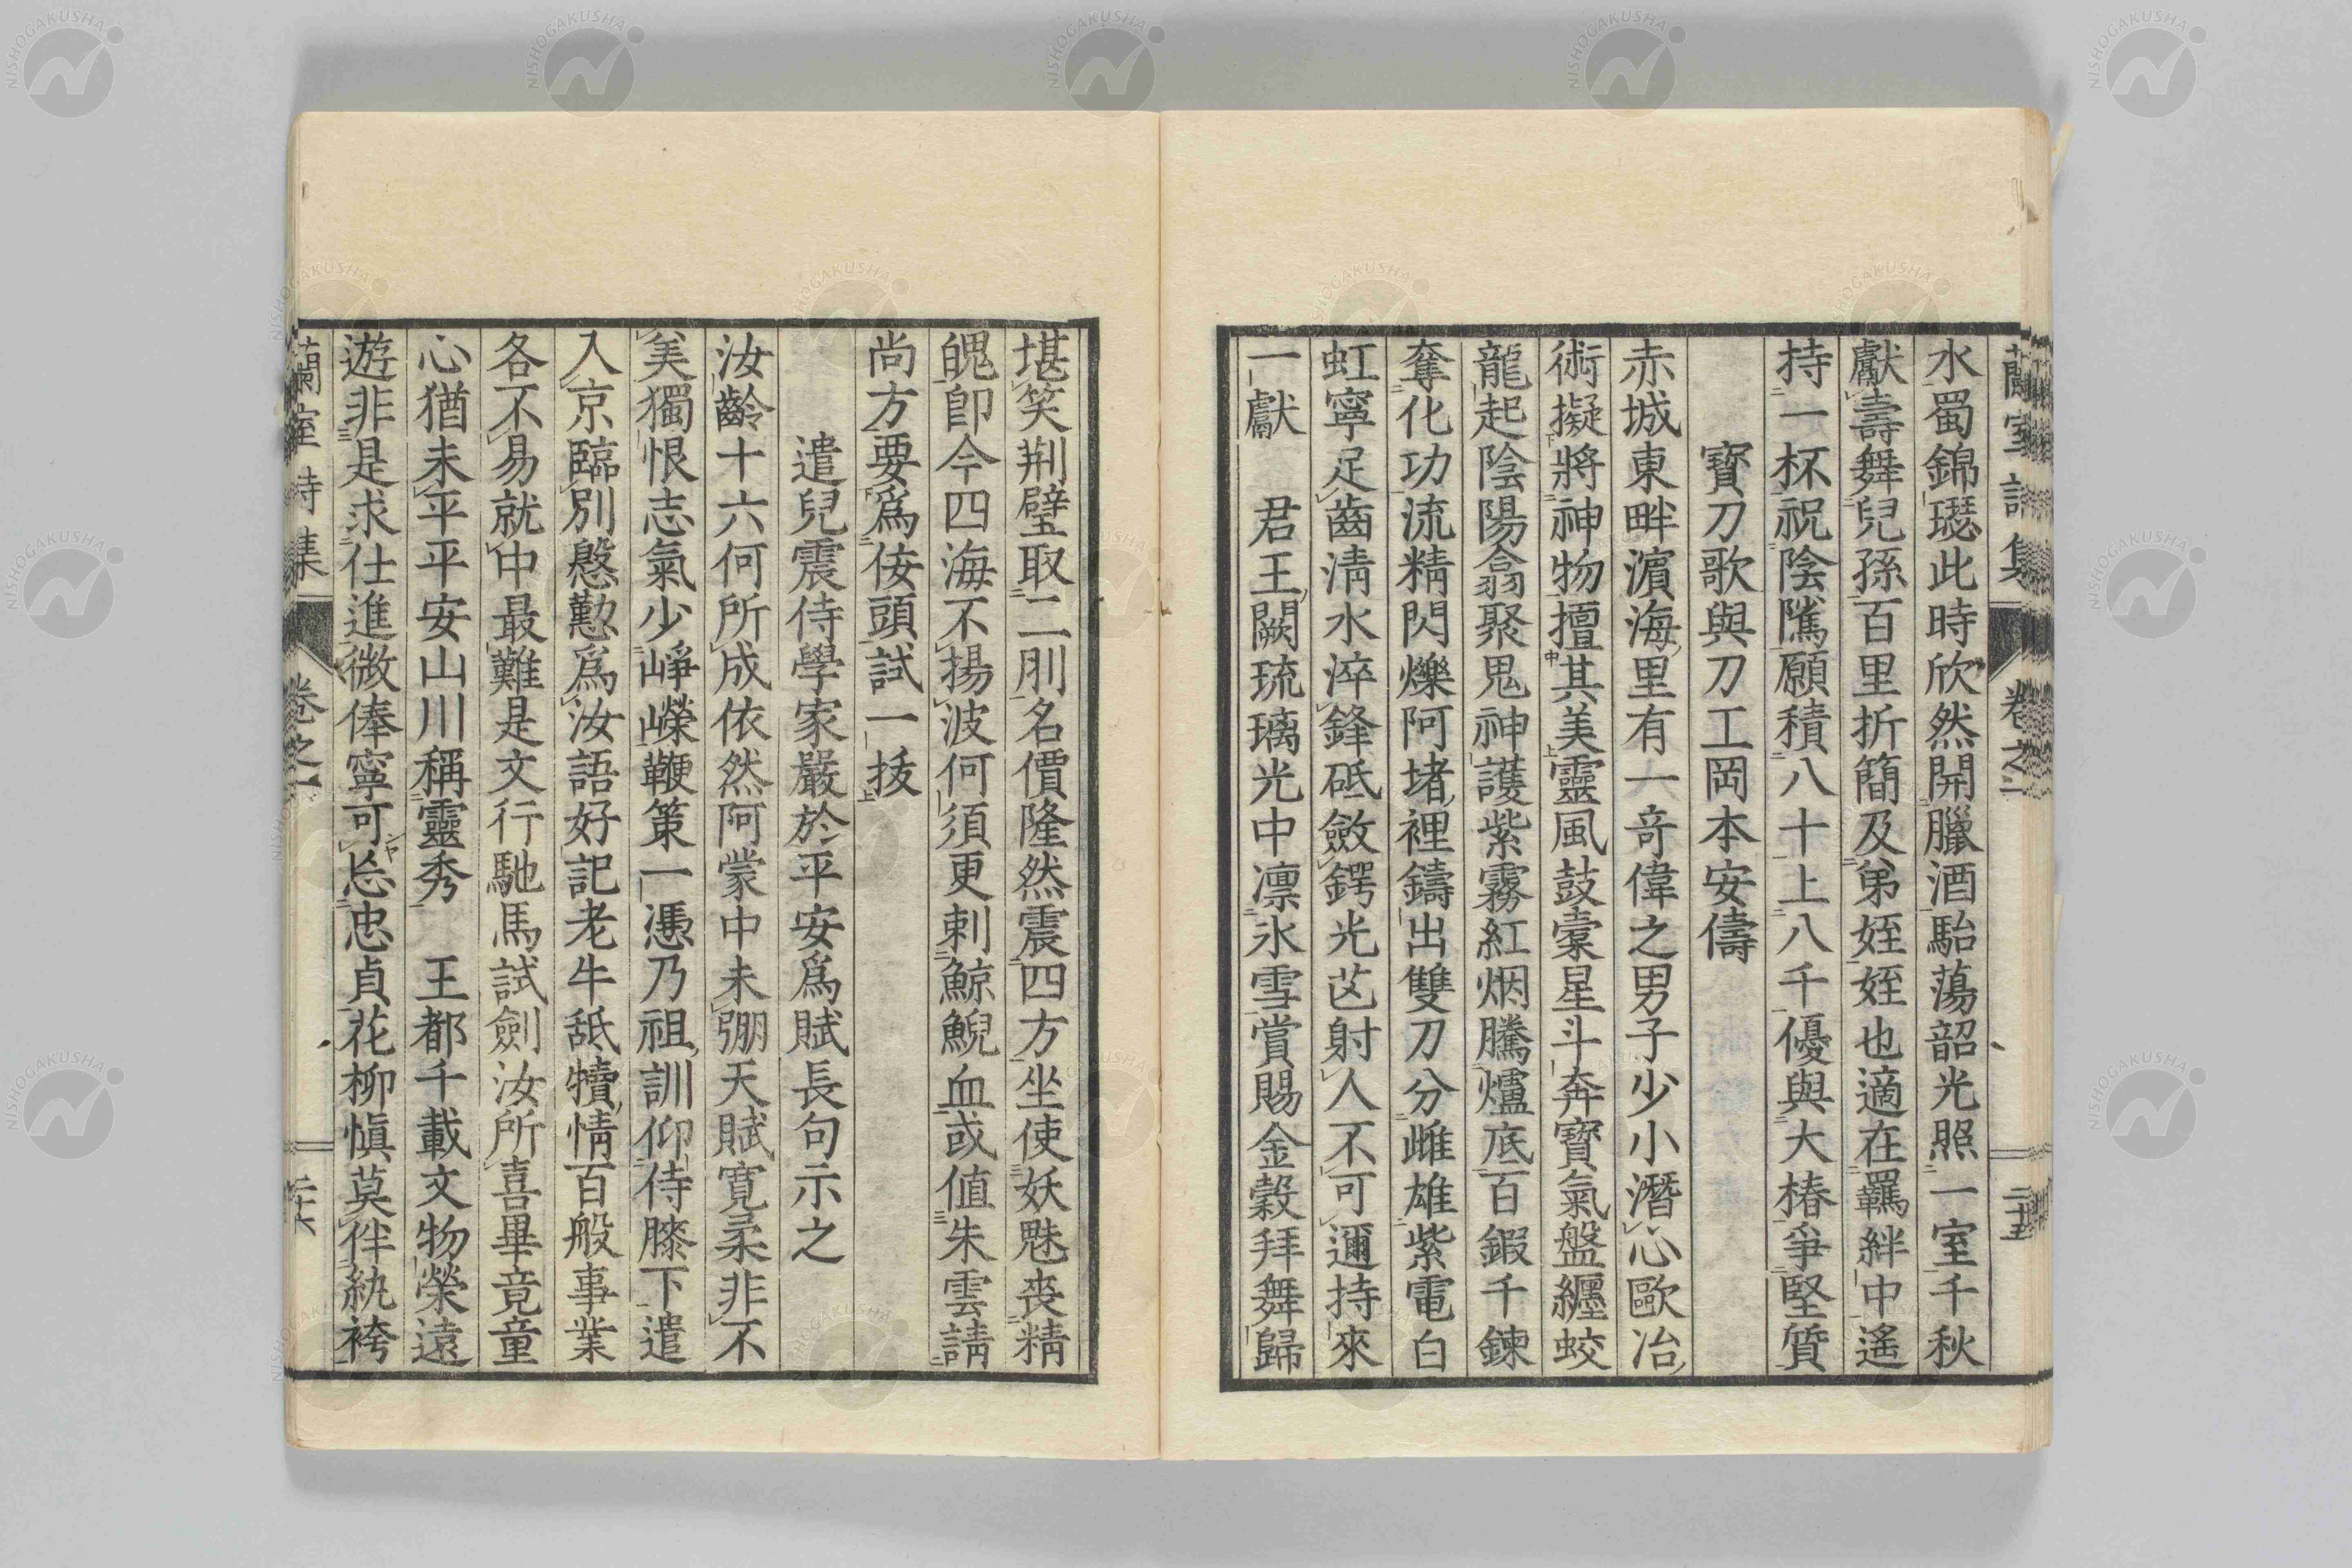 蘭室詩集 卷之一 二十五
水蜀錦璱此時欣然開臘酒駘蕩韶光照一室千秋
獻壽舞兒孫百里折簡及弟姪姪也適在羈絆中遙
持一杯祝陰隲願積八十上八千優與大椿爭堅質
寶刀歌與刀工岡本安儔
赤城東畔濵海里有一奇偉之男子少小潛心歐冶
術擬將神物擅其美靈風鼓橐星斗奔寶氣盤纒蛟
龍起陰陽翕聚鬼神護紫霧紅烟騰爐底百鍜千鍊
奪化功流精閃爍阿堵裡鑄出雙刀分雌雄紫電白
虹寧足齒淸水淬鋒砥斂鍔光芒射人不可邇持來
一獻　君王闕琉璃光中凛氷雪賞賜金縠拜舞歸
堪笑荆璧取二刖名價隆然震四方坐使妖魅丧精
魄卽今四海不揚波何須更剌鯨鯢血或値朱雲請
尚方要爲侫頭試一㧞
遣兒震侍學家嚴於平安爲賦長句示之
汝齡十六何所成依然阿蒙中未弸天賦寛柔非不
美獨恨志氣少崢嶸鞭策一憑乃祖訓仰侍膝下遣
入京臨別慇懃爲汝語好記老牛舐犢情百般事業
各不易就中最難是文行馳馬試劍汝所喜畢竟童
心猶未平平安山川稱靈秀　王都千載文物榮遠
遊非是求仕進微俸寧可忘忠貞花柳愼莫伴紈袴
蘭室詩集 卷之一 二十六